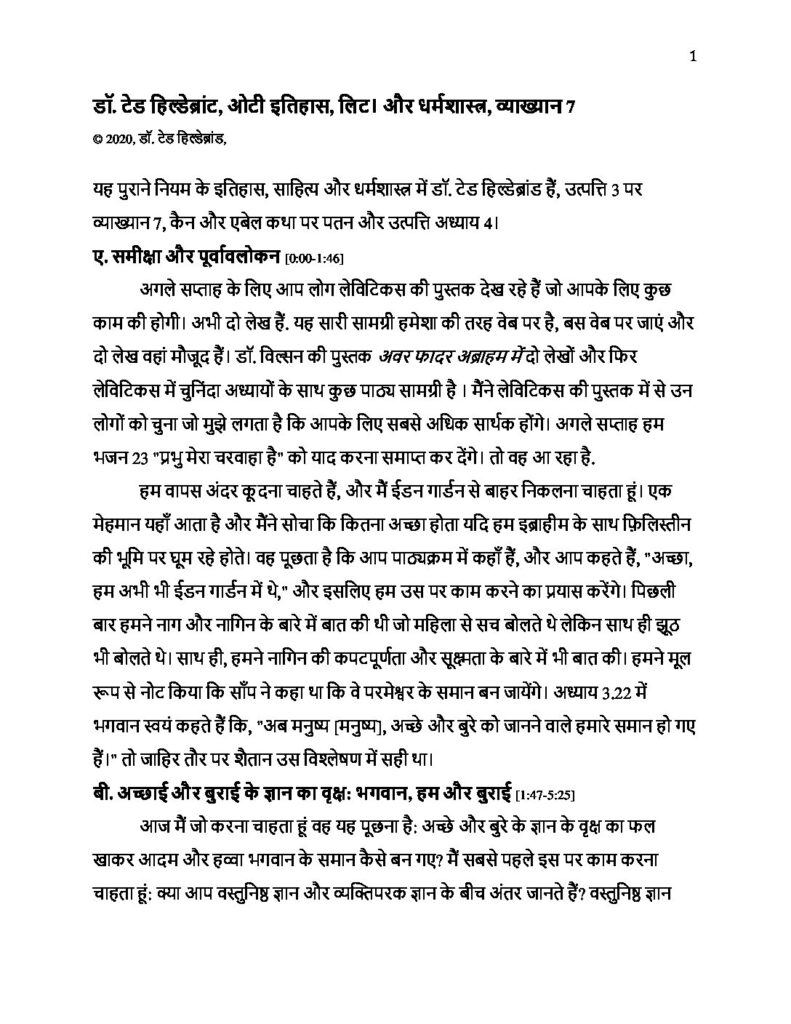 1
डॉ. टेड हिल्डेब्रांट, ओटी इतिहास, लिट। और धर्मशास्त्र, व्याख्यान 7
© 2020, डॉ. टेड हिल्डेब्रांड,
यह पुराने नियम के इतिहास, साहित्य और धर्मशास्त्र में डॉ. टेड हिल्डेब्रांड हैं, उत्पत्ति 3 पर
व्याख्यान 7, कैन और एबेल कथा पर पतन और उत्पत्ति अध्याय 4।
ए. समीक्षा और पूर्वावलोकन [0:00-1:46]
अगले सप्ताह के लिए आप लोग लेविटिकस की पुस्तक देख रहे हैं जो आपके लिए कुछ
काम की होगी। अभी दो लेख हैं. यह सारी सामग्री हमेशा की तरह वेब पर है, बस वेब पर जाएं और
दो लेख वहां मौजूद हैं। डॉ. विल्सन की पुस्तक अवर फादर अब्राहम में दो लेखों और फिर
लेविटिकस में चुनिंदा अध्यायों के साथ कुछ पाठ्य सामग्री है । मैंने लेविटिकस की पुस्तक में से उन
लोगों को चुना जो मुझे लगता है कि आपके लिए सबसे अधिक सार्थक होंगे। अगले सप्ताह हम
भजन 23 "प्रभु मेरा चरवाहा है" को याद करना समाप्त कर देंगे। तो वह आ रहा है.
हम वापस अंदर कूदना चाहते हैं, और मैं ईडन गार्डन से बाहर निकलना चाहता हूं। एक
मेहमान यहाँ आता है और मैंने सोचा कि कितना अच्छा होता यदि हम इब्राहीम के साथ फ़िलिस्तीन
की भूमि पर घूम रहे होते। वह पूछता है कि आप पाठ्यक्रम में कहाँ हैं, और आप कहते हैं, "अच्छा,
हम अभी भी ईडन गार्डन में थे," और इसलिए हम उस पर काम करने का प्रयास करेंगे। पिछली
बार हमने नाग और नागिन के बारे में बात की थी जो महिला से सच बोलते थे लेकिन साथ ही झूठ
भी बोलते थे। साथ ही, हमने नागिन की कपटपूर्णता और सूक्ष्मता के बारे में भी बात की। हमने मूल
रूप से नोट किया कि साँप ने कहा था कि वे परमेश्वर के समान बन जायेंगे। अध्याय 3.22 में
भगवान स्वयं कहते हैं कि, "अब मनुष्य [मनुष्य], अच्छे और बुरे को जानने वाले हमारे समान हो गए
हैं।" तो जाहिर तौर पर शैतान उस विश्लेषण में सही था।
बी. अच्छाई और बुराई के ज्ञान का वृक्ष: भगवान, हम और बुराई [1:47-5:25]
आज मैं जो करना चाहता हूं वह यह पूछना है: अच्छे और बुरे के ज्ञान के वृक्ष का फल
खाकर आदम और हव्वा भगवान के समान कैसे बन गए? मैं सबसे पहले इस पर काम करना
चाहता हूं: क्या आप वस्तुनिष्ठ ज्ञान और व्यक्तिपरक ज्ञान के बीच अंतर जानते हैं? वस्तुनिष्ठ ज्ञान